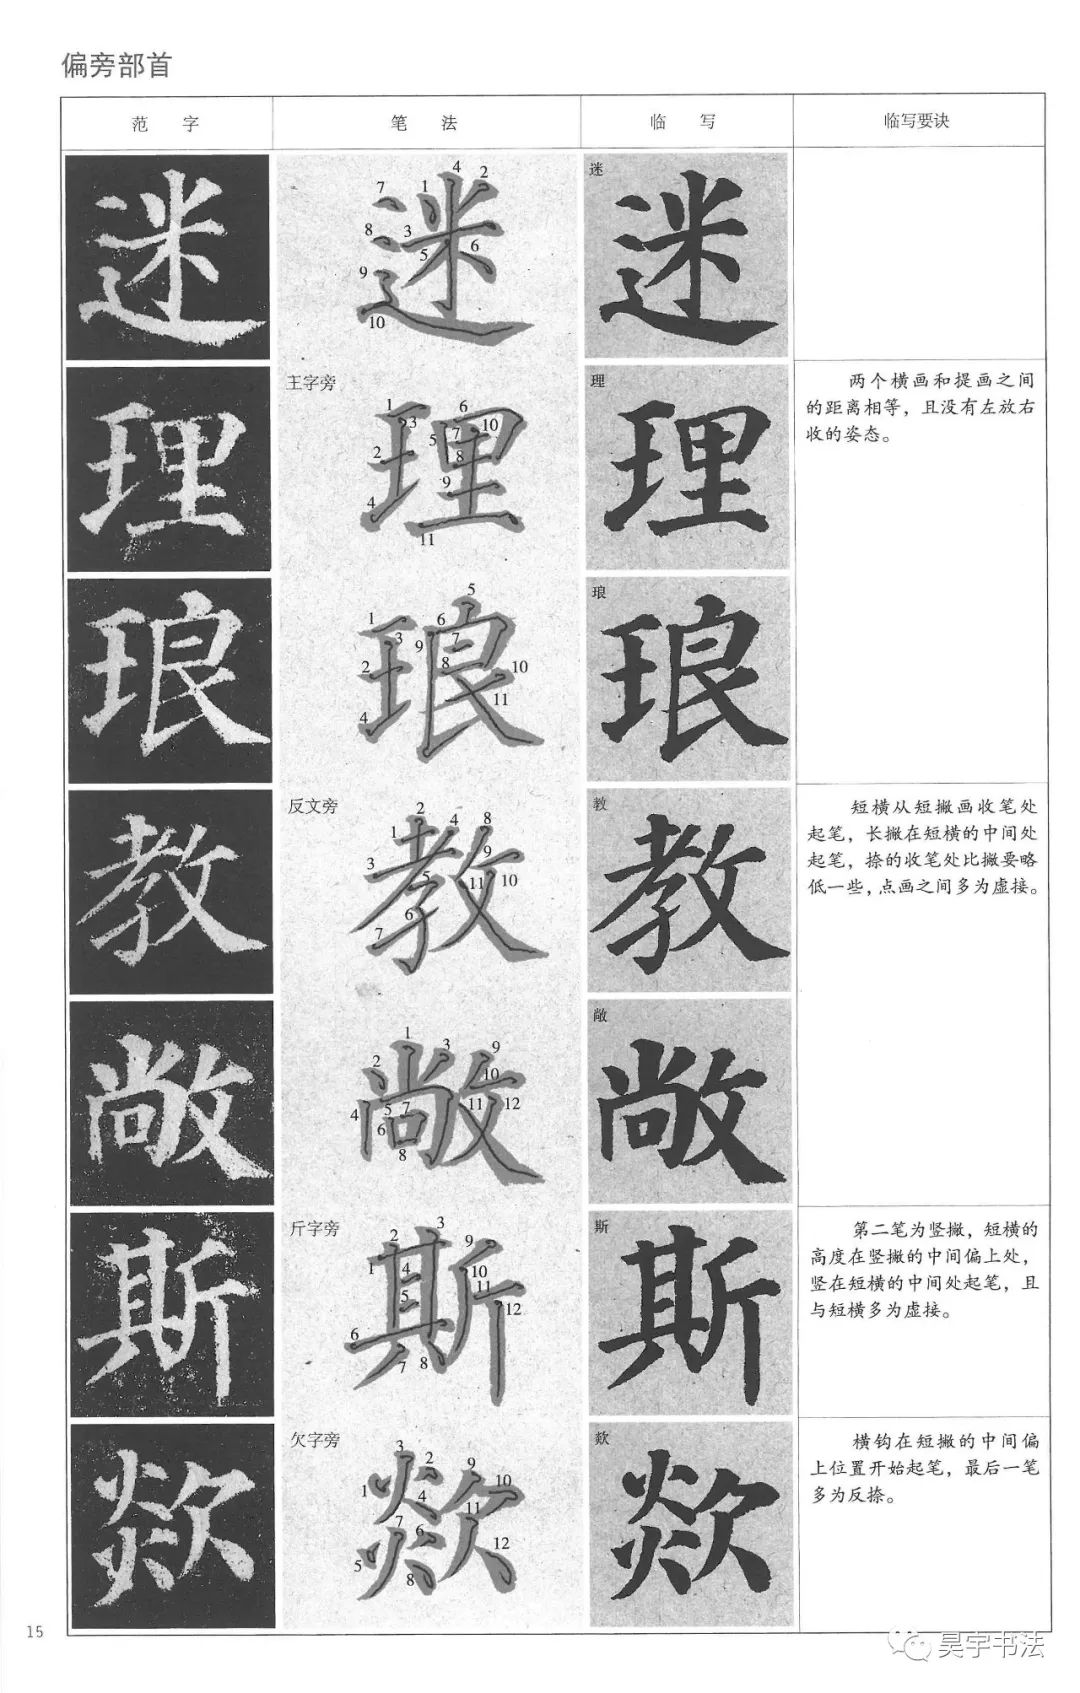 偏旁部首
范 字 笔 法 临 写 临写要诀
迷
迷 7 1 4 2 8 3 5 6 9 10
迷
王字旁
理
理 1 3 6 10 5 7 2 8 9 4 11
理
理
两个横画和提画之间
的距离相等，且没有左放右
收的姿态。
琅
琅 1 5 6 3 9 7 2 8 10 11 4
琅
琅
反文旁
教
教 2 4 8 1 9 3 5 11 10 6 7
教
教
短横从短撇画收笔处
起笔，长撇在短横的中间处
起笔，捺的收笔处比撇要略
低一些，点画之间多为虚接。
敞
敞 1 3 9 2 10 5 7 11 12 4 6 8
敞
敞
斤字旁
斯
斯 3 2 9 1 4 10 5 11 12 6 7 8
斯
斯
第二笔为竖撇，短横的
高度在竖撇的中间偏上处，
竖在短横的中间处起笔，且
与短横多为虚接。
欠字旁
欻
欻 3 2 9 1 4 10 11 7 6 12 5 8
欻
欻
横钩在短撇的中间偏
上位置开始起笔，最后一笔
多为反捺。
15
昊宇书法